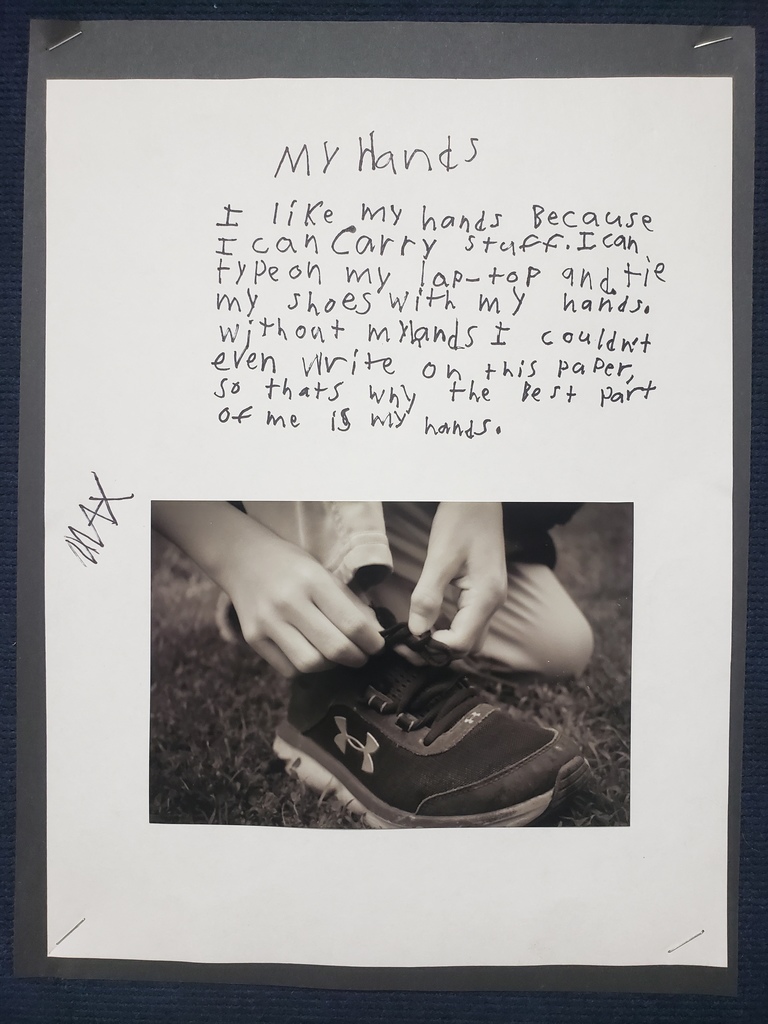 My Hands
I like my hands Because
I can Carry stuff. I can
type on my lap-top and tie
my shoes with my hands.
without my Hands I couldn't
even write on this paper,
so thats why the Best part
of me is my hands.
MAX